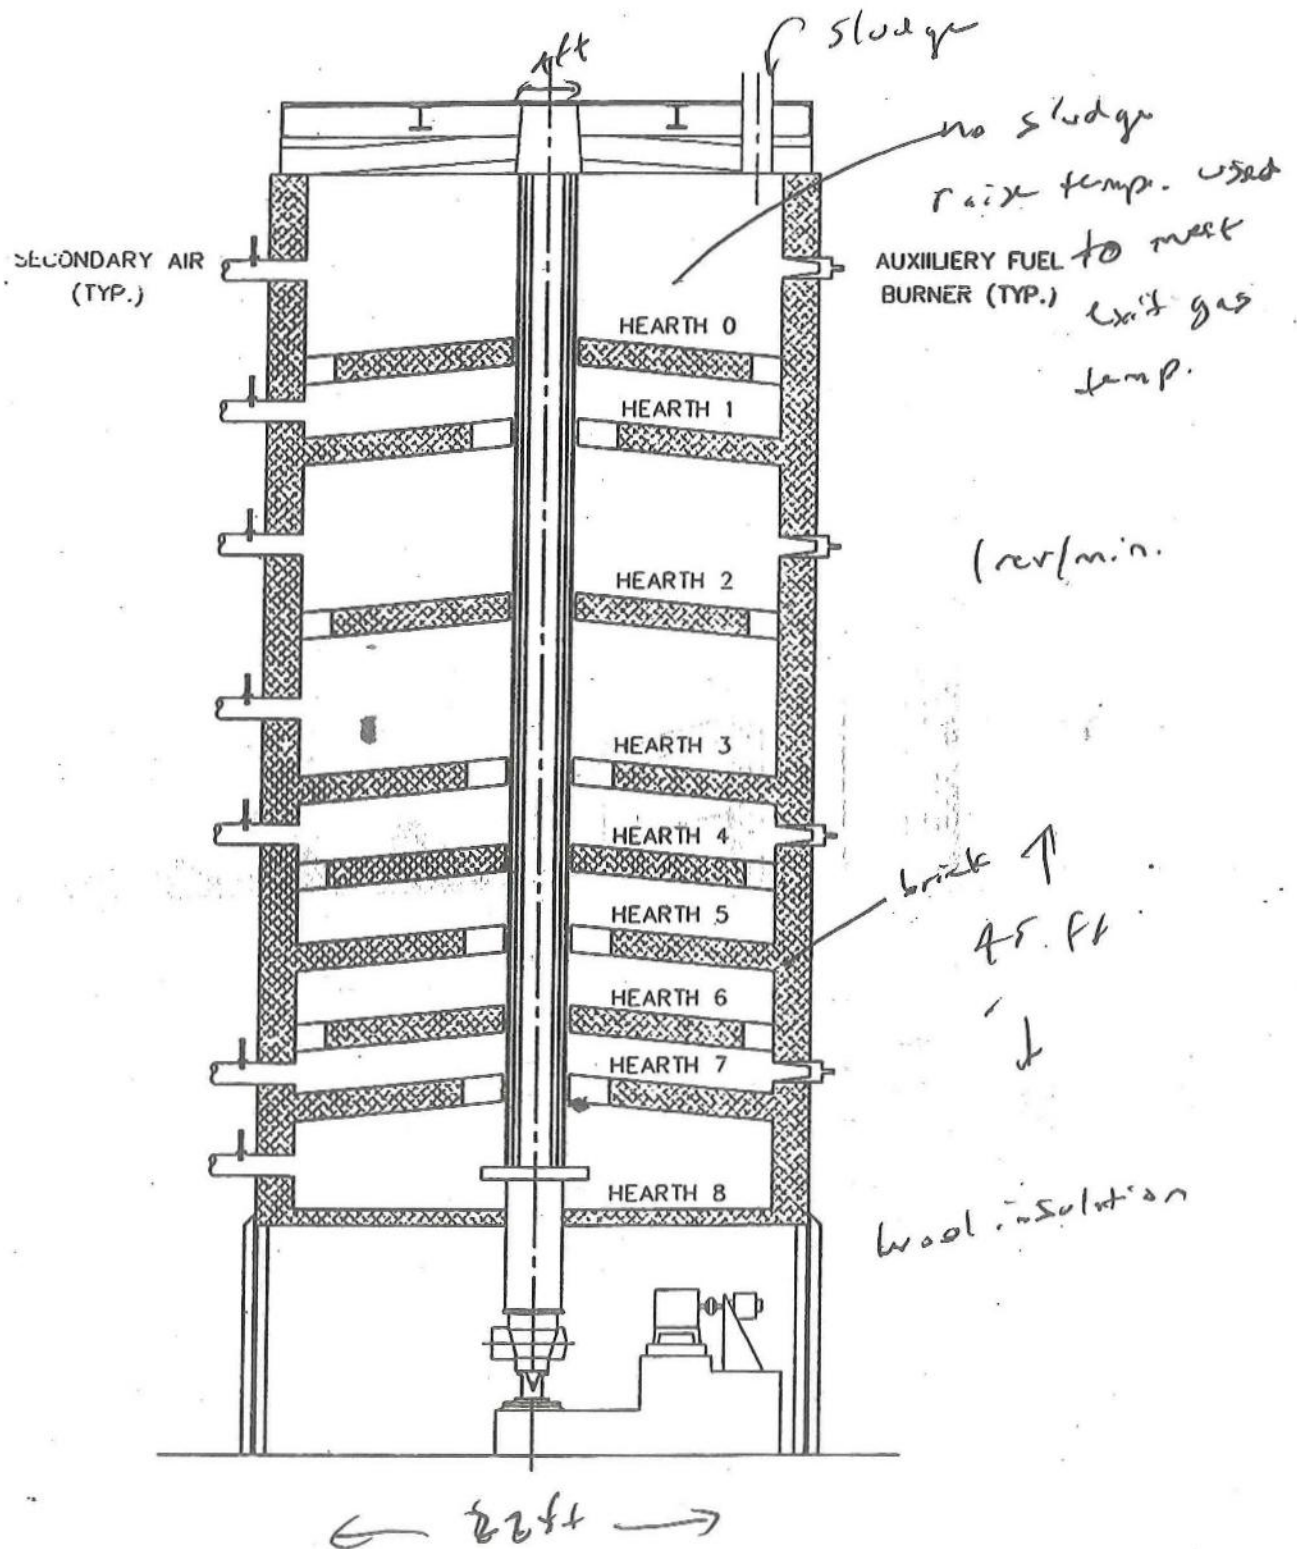 4 ft
sludge
no sludge
raise temp. used
to meet
exit gas
temp.
SECONDARY AIR
(TYP.)
AUXIILIERY FUEL
BURNER (TYP.)
HEARTH 0
HEARTH 1
1 rev/min.
HEARTH 2
HEARTH 3
HEARTH 4
brick
HEARTH 5
45 ft
HEARTH 6
HEARTH 7
HEARTH 8
wool insulation
22 ft